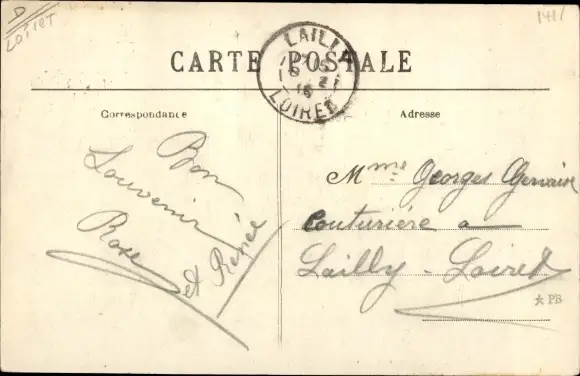 D
LOIRET
1411
CARTE POSTALE
LAILLY
LOIRET
Correspondance
Adresse
Bon
Souvenir
Rose
et Renée
Mme Georges Gervaise
Couturière a
Lailly - Loiret
★ PB